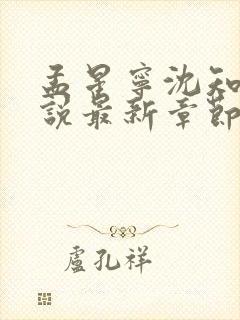 孟星寧沈知
說最新章節
盧孔祥